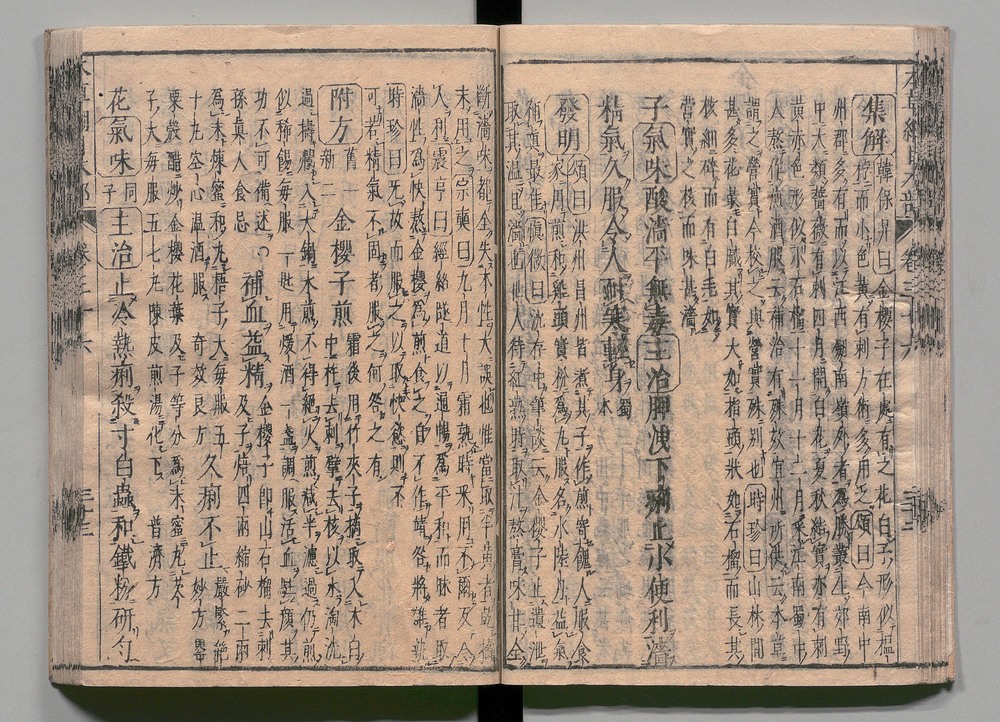 集解韓保昇曰金櫻子在處有之花白子形似榅
桲而小色黄有刺方術多用之頌曰今南中
州郡多有而以江西劒南嶺外者爲勝叢生郊野
中大類薔薇有刺四月開白花夏秋結實亦有刺
黄赤色形似小石榴十一月十二月采江南蜀中
人熬作煎酒服云補治有殊效宜州所供云本草
謂之營實今校之與營實殊别也時珍曰山林間
甚多花最白膩其實大如指頭狀如石榴而長其
核細碎而有白毛如
營實之核而味甚濇
子氣味酸濇平無毒主治脾泄下痢止小便利濇
精氣久服令人耐寒輕身蜀本
發明頌曰洪州昌州皆煮其子作煎寄饋人服食
家用煎和雞頭實粉爲丸服名水陸丹益氣
補真最佳愼微曰沈存中筆談云金櫻子止遺泄
取其温且濇也世人待紅熟時取汁熬膏味甘全
斷濇味都全失本性大誤也惟當取半黄者乾擣
末用之宗奭曰九月十月霜熟時采用不爾反令
人利震亨曰經絡隧道以通暢爲平和而昧者取
濇性爲快熬金櫻爲煎食之自不作靖咎將誰執
時珍曰無故而服之以取快慾則不
可若精氣不固者服之何咎之有
附方舊一新二金櫻子煎霜後用竹夾子摘取入木臼
中杵去刺擘去核以水淘洗
過擣爛入大鍋水煎不得絶火煎減半濾過仍煎
似稀餳每服一匙用煖酒一盞調服活血駐顔其
功不可備述補血益精金櫻子即山石榴去刺
孫真人食忌及子焙四兩縮砂二兩
爲末煉蜜和丸梧子大每服五
十丸空心温酒服奇效良方久痢不止嚴緊絶妙方罌
粟殼醋炒金櫻花葉及子等分爲末蜜丸芡
子大每服五七丸陳皮煎湯化下普濟方
花氣味同子主治止冷熱痢殺寸白蟲和鐵粉研匀